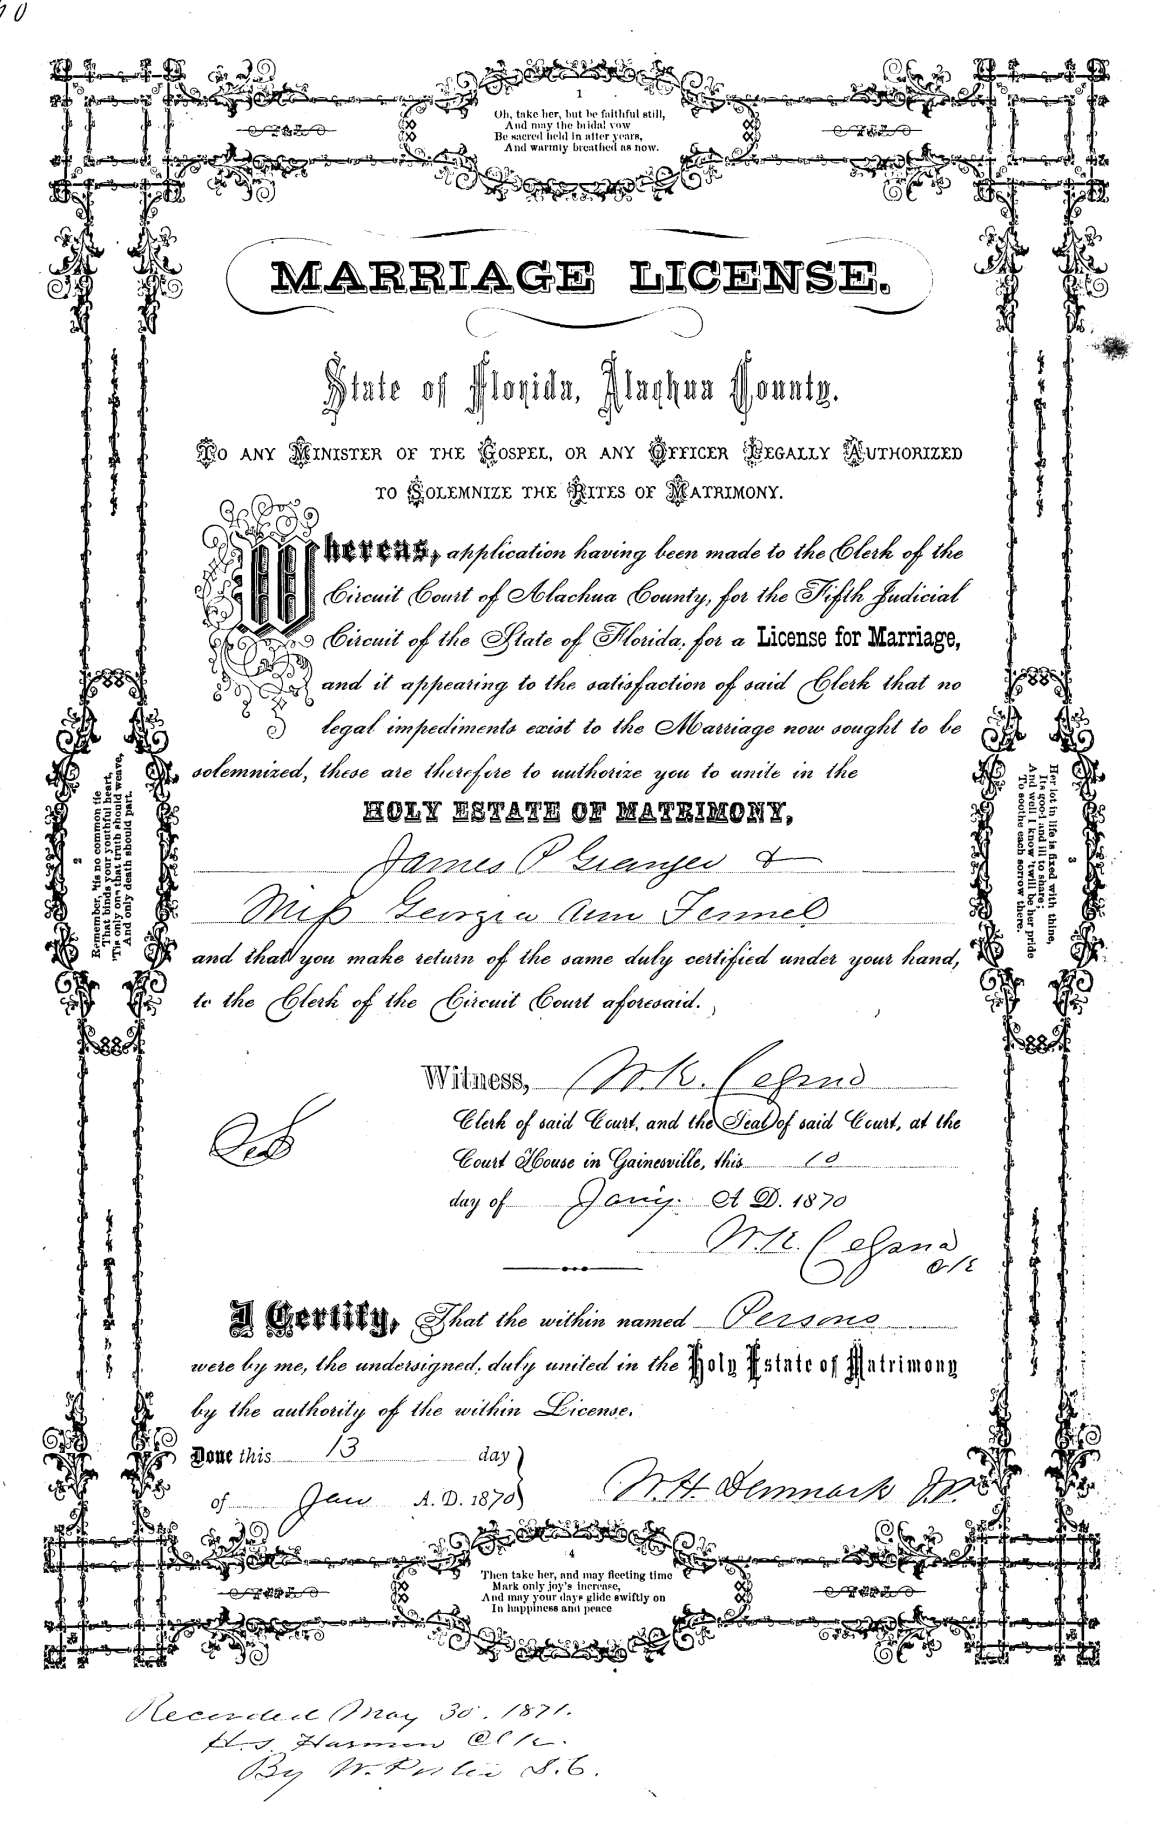 Oh, take her, but be faithful still,
And may the bridal vow
Be sacred held in after years,
And warmly breathed as now.
1
MARRIAGE LICENSE.
State of Florida, Alachua County.
To any Minister of the Gospel, or any Officer Legally Authorized
to Solemnize the Rites of Matrimony.
Whereas, application having been made to the Clerk of the
Circuit Court of Alachua County, for the Fifth Judicial
Circuit of the State of Florida, for a License for Marriage,
and it appearing to the satisfaction of said Clerk that no
legal impediments exist to the Marriage now sought to be
solemnized, these are therefore to authorize you to unite in the
HOLY ESTATE OF MATRIMONY,
James P Granger &
Miss Georgia Ann Fennel
and that you make return of the same duly certified under your hand,
to the Clerk of the Circuit Court aforesaid.
2
Remember, 'tis no common tie
That binds your youthful heart,
'Tis only one that truth should weave,
And only death should part.
3
Her lot in life is fixed with thine,
Its good and ill to share;
And well I know 'twill be her pride
To soothe each sorrow there.
Witness, W. K. Cessna
Clerk of said Court, and the Seal of said Court, at the
Court House in Gainesville, this 10
day of Jany. A D. 1870
Seal
W. K. Cessna
Clk
I Certify, That the within named Persons
were by me, the undersigned, duly united in the Holy Estate of Matrimony
by the authority of the within License.
Done this 13 day
of Jan A. D. 1870
W. H. Denmark J.P.
4
Then take her, and may fleeting time
Mark only joy's increase,
And may your days glide swiftly on
In happiness and peace
Recorded May 30. 1871.
H. S. Harmon Clk.
By W. Porter D. C.